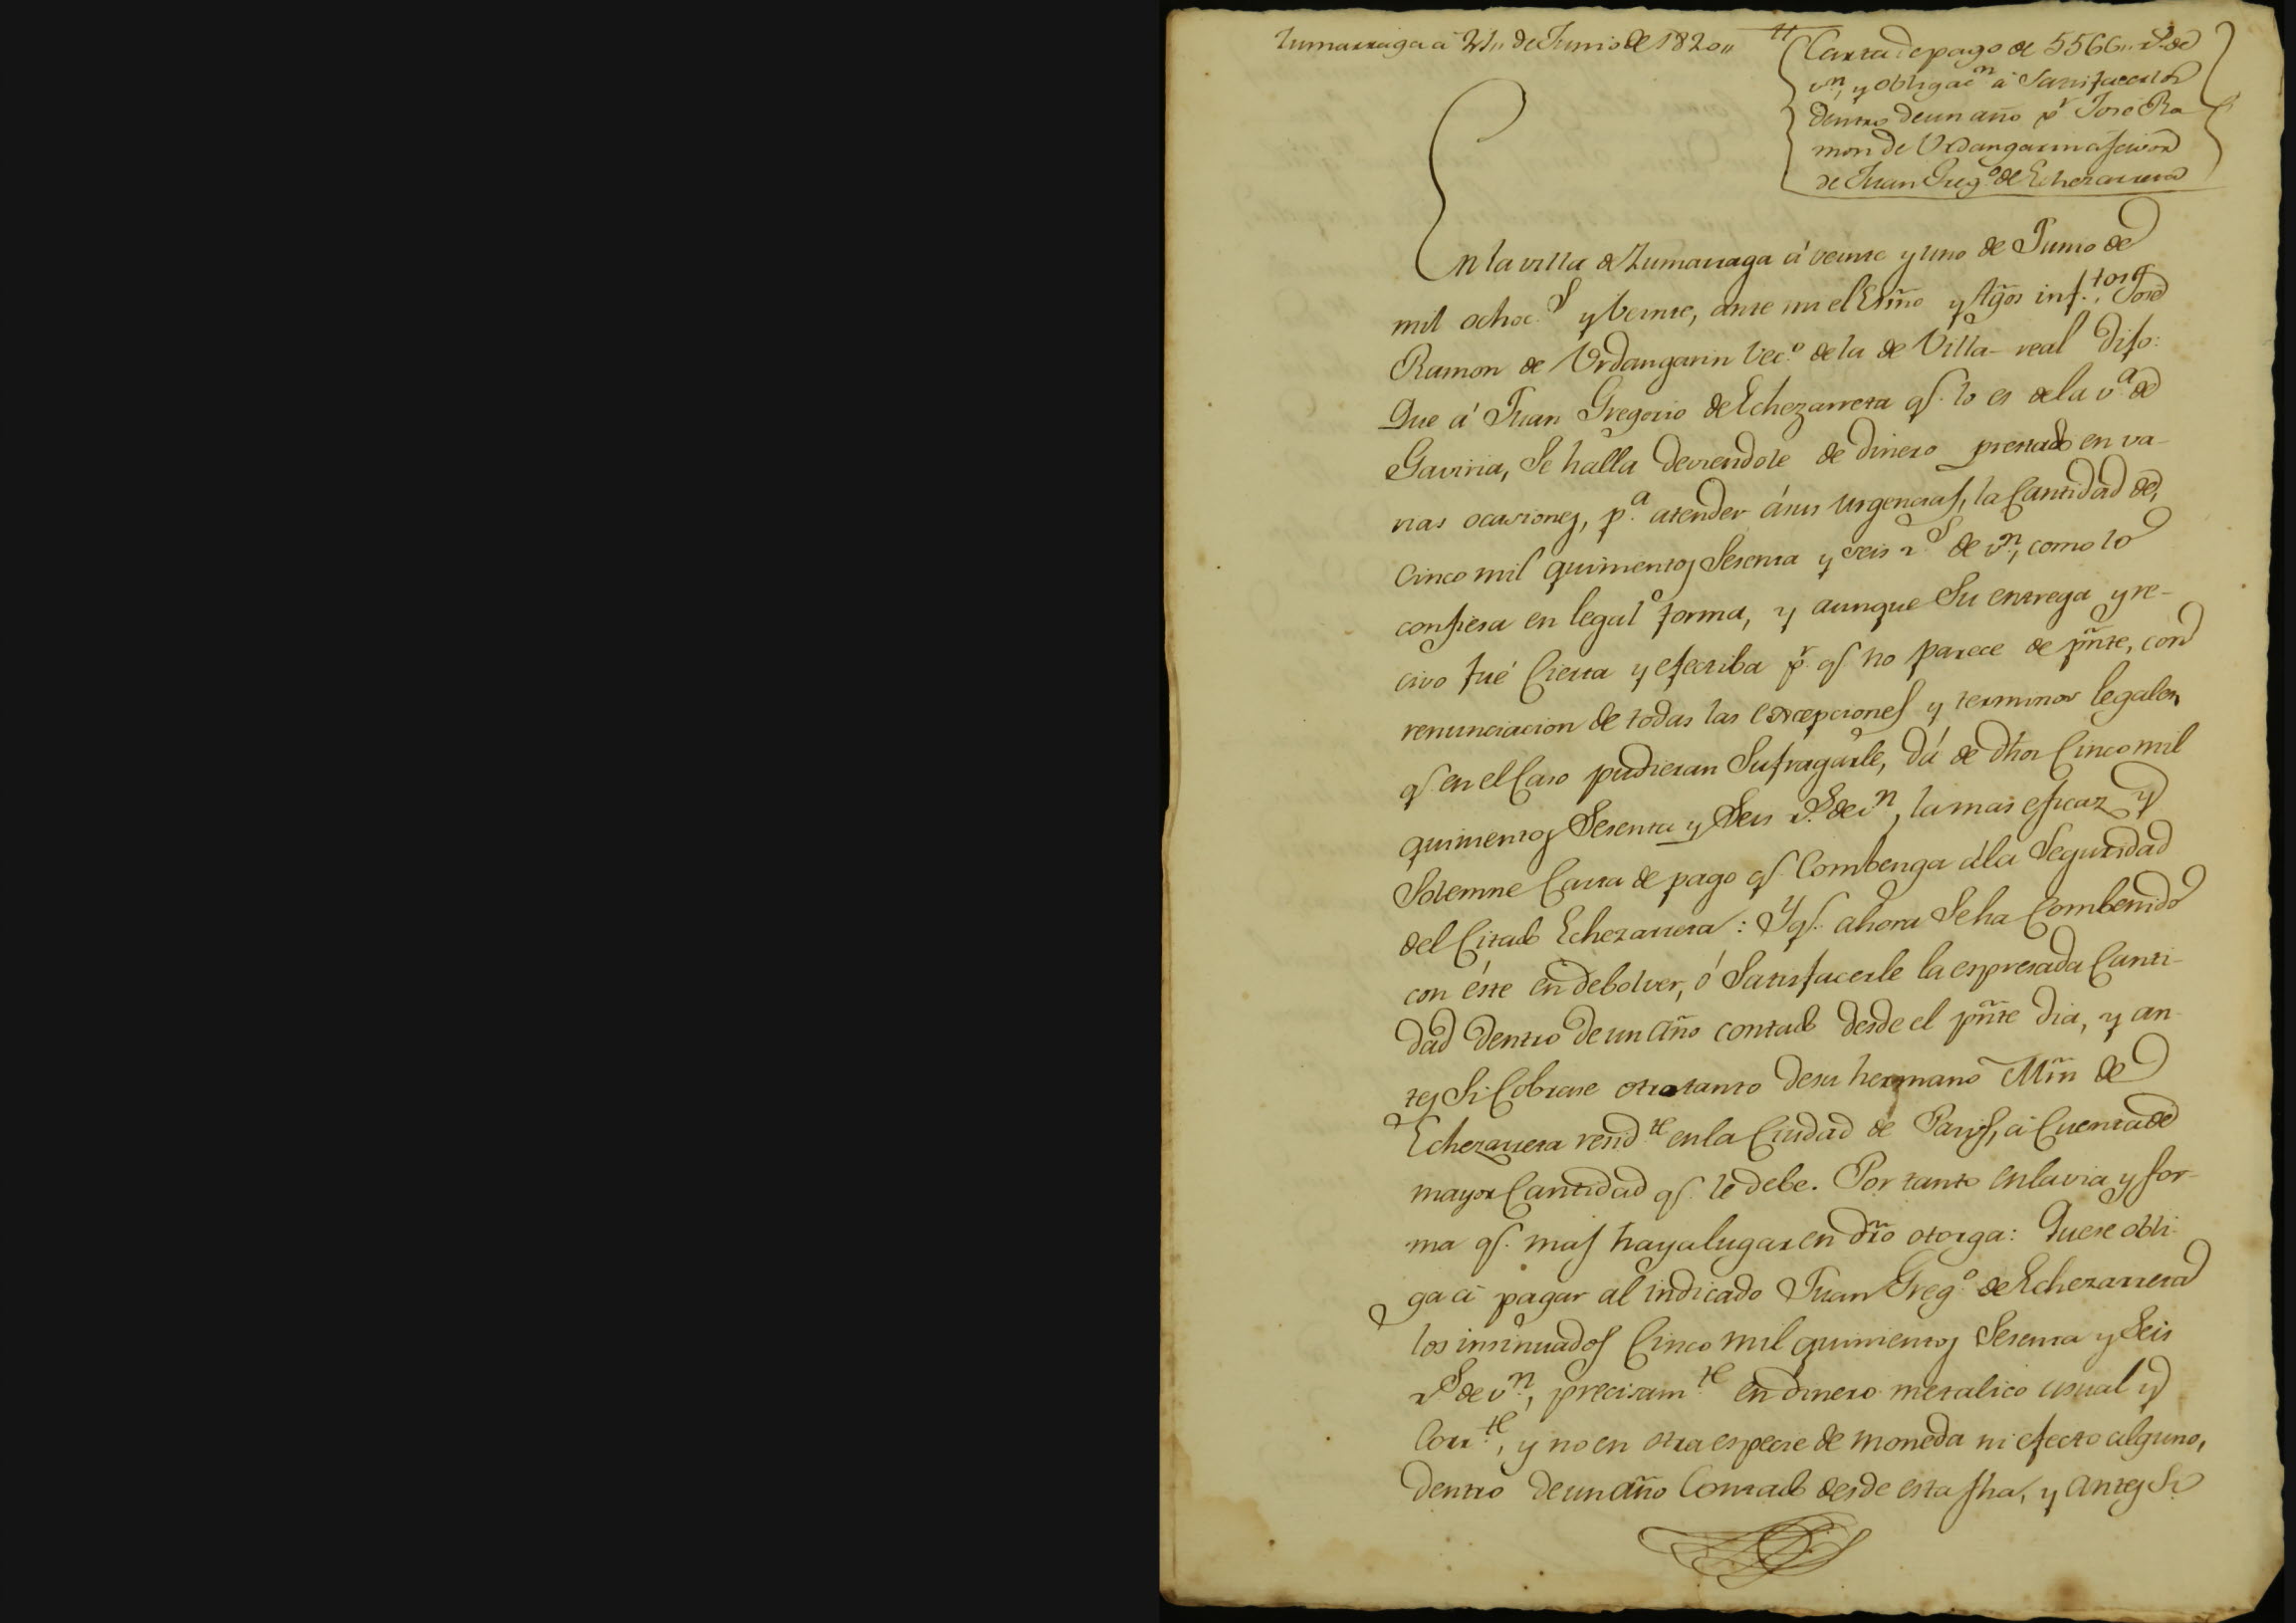 Zumarraga á 21,, de Junio de 1820,,
Carta de pago de 5566,, r.s de
v.n, y obligac.n á Satisfacerlos
dentro de un año p.r José Ra
mon de Urdangarin á favor
de Juan Greg.o de Echezarreta
En la villa de Zumarraga á veinte y uno de Junio de
mil ochoc.s y beinte, ante mi el Esño y tgos inf.tos, José
Ramon de Urdangarin Vec.o de la de Villa-real Dijo:
Que á Juan Gregorio de Echezarreta q.e lo es de la v.a de
Gaviria, Se halla deviendole de dinero prestado en va-
rias ocasiones, p.a atender á sus urgencias, la Cantidad de
Cinco mil quinientos Sesenta y seis r.s de v.n, como lo
confiesa en legal forma, y aunque Su entrega y re-
civo fué Cierta y efectiba p.r q.e no parece de pñte, con
renunciacion de todas las excepciones y terminos legales
q.e en el Caso pudieran Sufragarle, dá de dhos Cinco mil
quinientos Sesenta y Seis r.s de v.n, la mas eficaz y
Solemne Carta de pago q.e Combenga á la Seguridad
del Citado Echezarreta: Y q.e ahora Se ha Combenido
con éste en debolver, ó Satisfacerle la espresada Canti-
dad dentro de un año contado desde el pñte dia, y an-
tes Si Cobrase otro tanto de su hermano Mñn de
Echezarreta resid.te en la Ciudad de Paris, á Cuenta de
mayor Cantidad q.e le debe. Por tanto en la via y for-
ma q.e mas haya lugar en dro otorga: Que se obli-
ga á pagar al indicado Juan Greg.o de Echezarreta
los insinuados Cinco mil quinientos Sesenta y Seis
r.s de v.n, precisam.te en dinero metalico usual y
Corr.te, y no en otra especie de moneda ni efecto alguno,
dentro de un año Contado desde esta fha, y antes Si